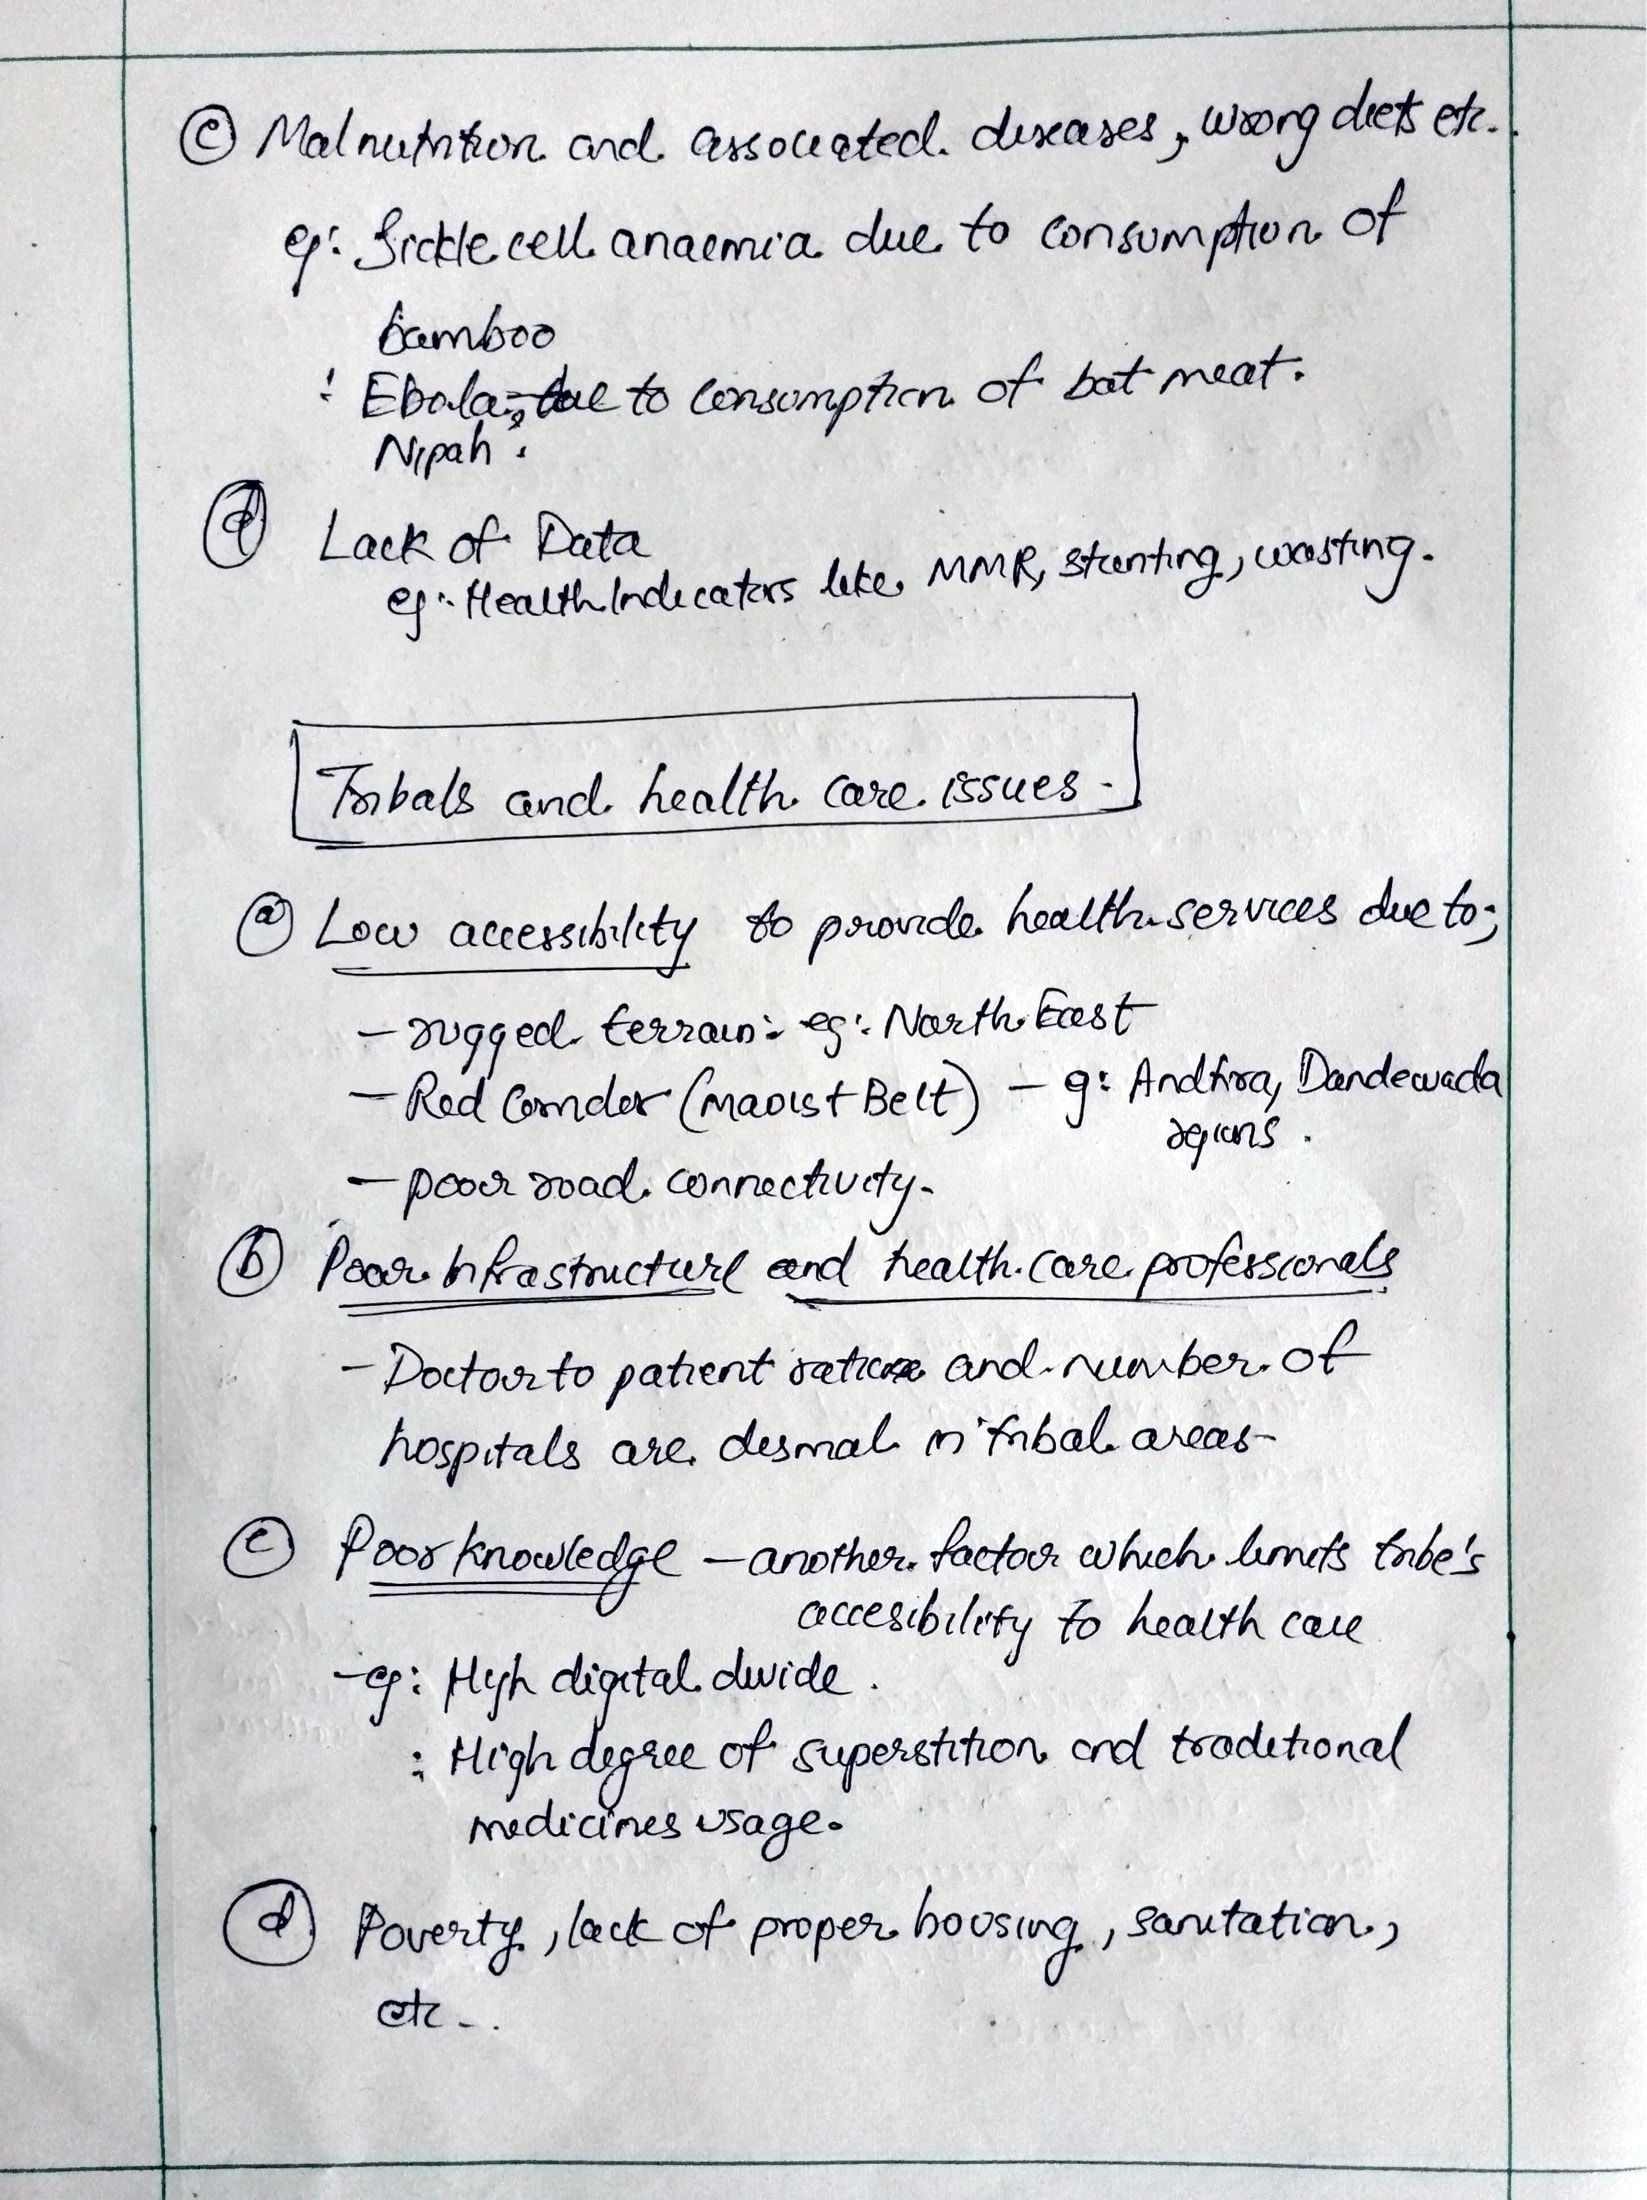 (c) Malnutrition and associated diseases, wrong diets etc.
eg: Sickle cell anaemia due to consumption of
bamboo
: Ebola, due to consumption of bat meat.
Nipah
(d) Lack of Data
eg: Health Indicators like MMR, stunting, wasting.
Tribals and health care issues -
(a) Low accessibility to provide health services due to;
- rugged terrain: eg: North East
- Red Corridor (Maoist Belt) - g: Andhra, Dandewada
regions.
- poor road connectivity.
(b) Poor Infrastructure and health care professionals
- Doctor to patient ratio and number of
hospitals are dismal in tribal areas-
(c) Poor knowledge - another factor which limits tribe's
accesibility to health care
- eg: High digital divide.
: High degree of superstition and traditional
medicines usage.
(d) Poverty, lack of proper housing, sanitation,
etc..